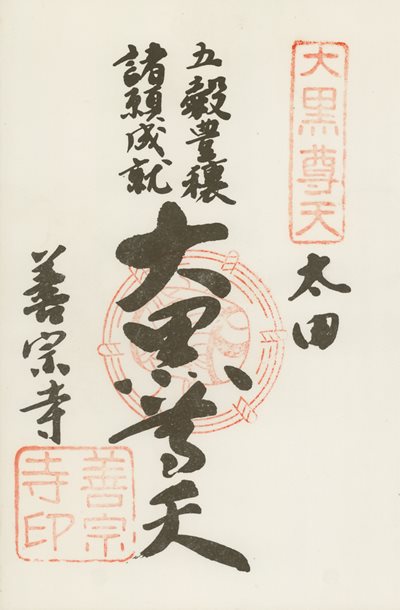 大黒尊天
太田
五穀豊穣
諸願成就
大黒尊天
善宗寺
善宗寺印